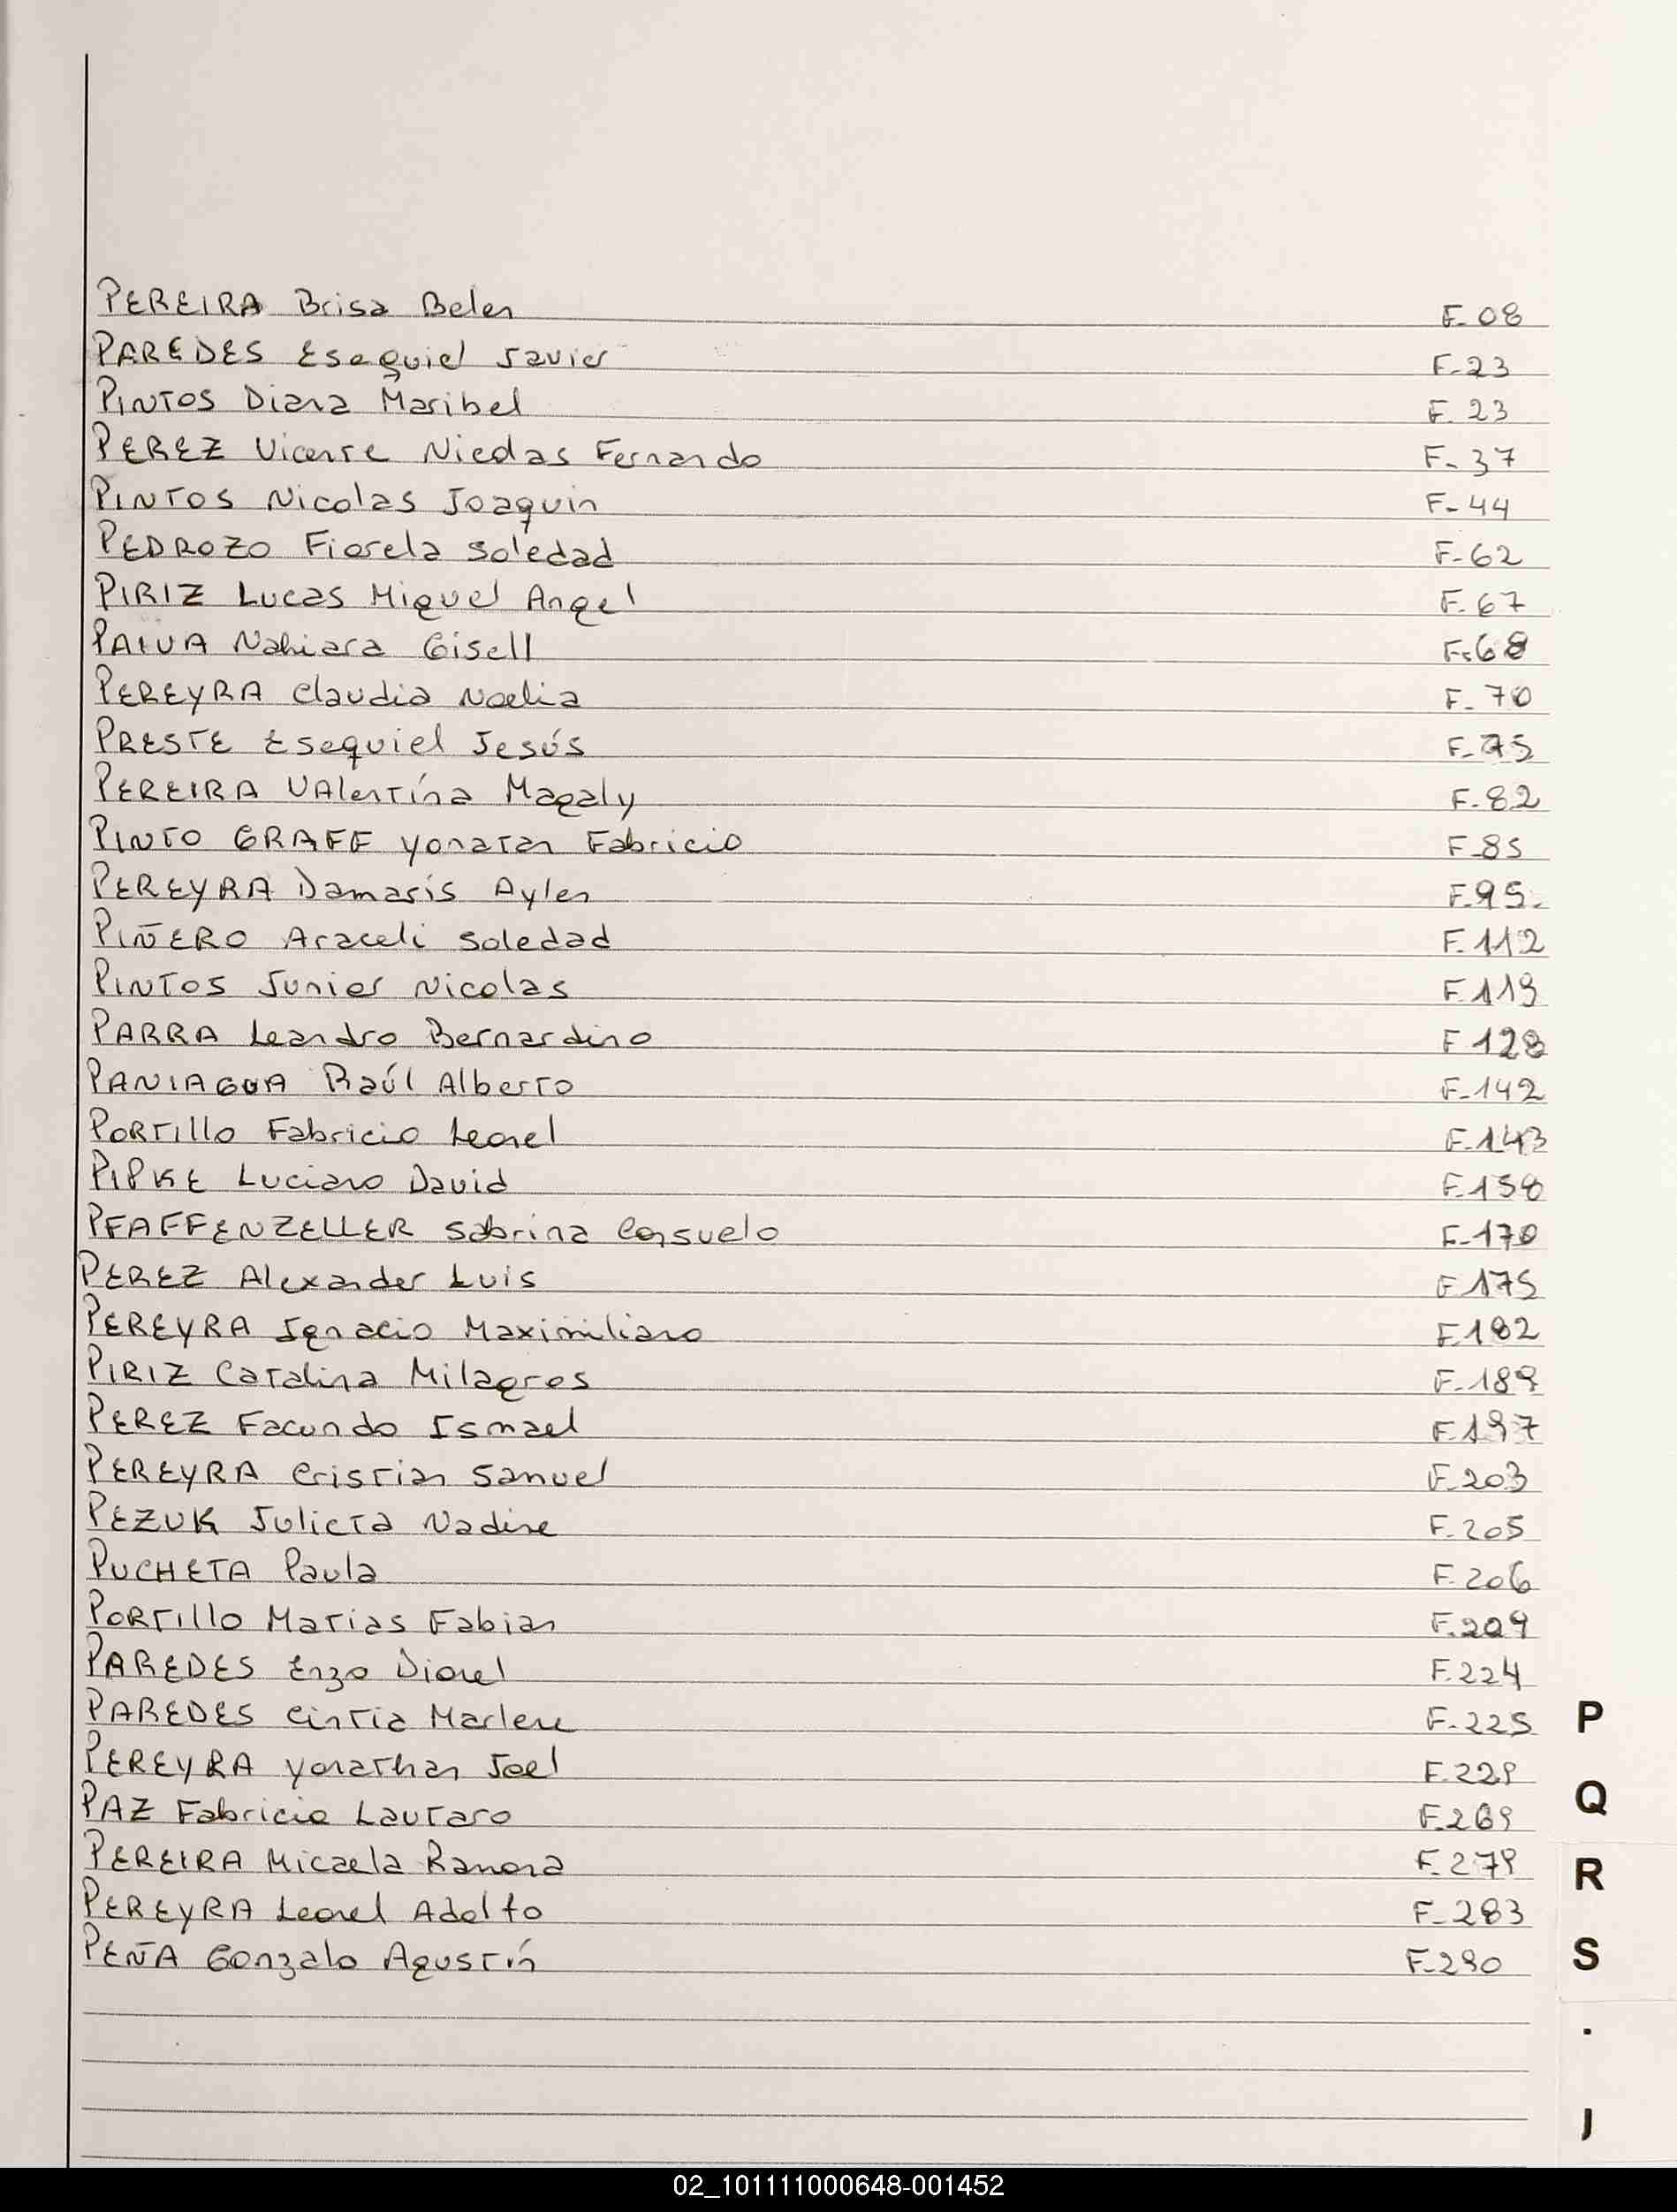 PEREIRA Brisa Belen F-08
PAREDES Esequiel Javier F-23
PINTOS Diana Maribel F-23
PEREZ Vicente Nicolas Fernando F-37
PINTOS Nicolas Joaquin F-44
PEDROZO Fiorela Soledad F-62
PIRIZ Lucas Miguel Angel F-67
PAIVA Nahiara Gisell F-68
PEREYRA Claudia Noelia F-70
PRESTE Esequiel Jesús F-75
PEREIRA Valentína Magaly F-82
PINTO GRAFF Yonatan Fabricio F-85
PEREYRA Damarís Aylen F-95.
PIÑERO Araceli Soledad F-112
PINTOS Junior Nicolas F-119
PARRA Leandro Bernardino F-128
PANIAGUA Raúl Alberto F-142
PORTILLO Fabricio Leonel F-143
PIPKE Luciano David F-158
PFAFFENZELLER Sabrina Consuelo F-170
PEREZ Alexander Luis F-175
PEREYRA Ignacio Maximiliano F-182
PIRIZ Catalina Milagros F-189
PEREZ Facundo Ismael F-197
PEREYRA Cristian Samuel F-203
PEZUK Julieta Nadine F-205
PUCHETA Paula F-206
PORTILLO Matias Fabian F-209
PAREDES Enzo Dionel F-224
PAREDES Cintia Marlene F-225
PEREYRA Yonathan Joel F-229
PAZ Fabricio Lautaro F-269
PEREIRA Micaela Ramona F-279
PEREYRA Leonel Adolfo F-283
PEÑA Gonzalo Agustín F-290
P
Q
R
S
.
J
02_101111000648-001452